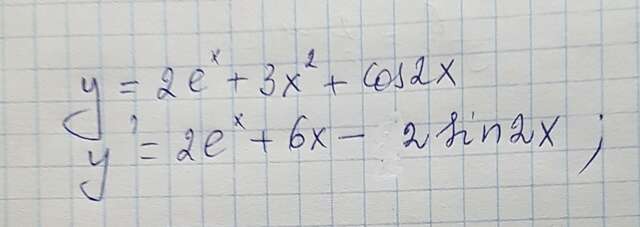 y = 2eˣ + 3x² + cos2x
y' = 2eˣ + 6x - 2 sin2x ;